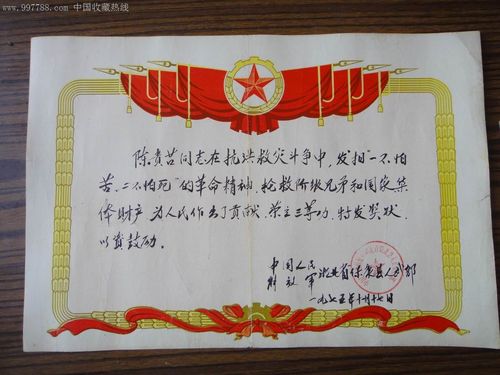 www.997788.com 中国收藏热线
陈贵同志在抗洪救灾斗争中,发扬"一不怕
苦、二不怕死"的革命精神,抢救阶级兄弟和国家集
体财产,为人民作出了贡献,荣立三等功,特发奖状,
以资鼓励。
中国人民
解放军湖北省保康县人武部
一九七五年十月十七日